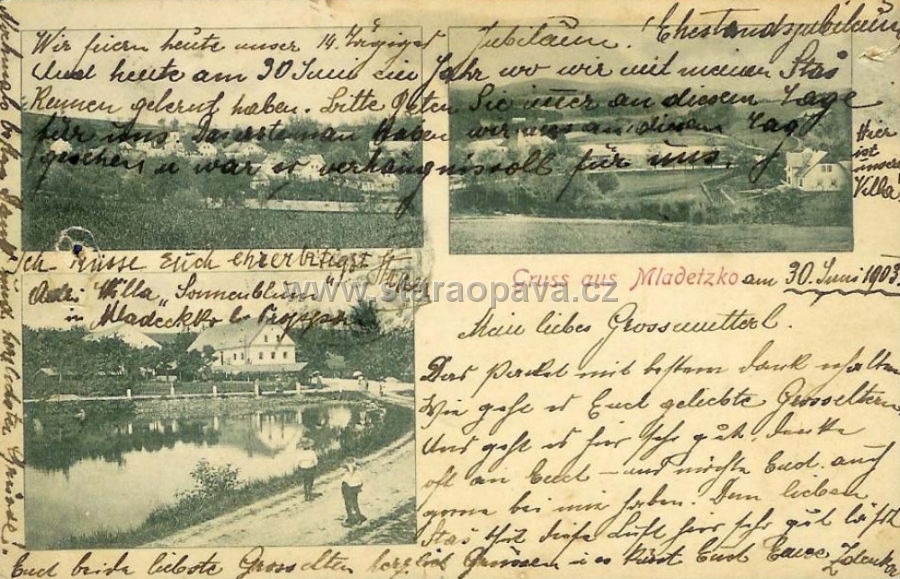 Wir feiern heute unser 14. Jubiläum. Ehestandsjubiläum
und heute am 30 Juni ein Jahr wo wir mit meinen Stas
Rennen gelernt haben. Bitte beten Sie immer an diesem Tage
für uns. haben wir uns an diesem Tag
gesehen u war es verhängnissvoll für uns.
Hier
ist
unsere
Villa
Ich küsse Euch ehrerbietigst Stas
Villa "Sonnenblum"
in Mladeckko
www.staraopava.cz
Gruss aus Mladetzko am 30. Juni 1903.
Mein liebes Grossmutterl.
Das Packet mit bestem Dank erhalten
Wie geht es Euch geliebte Grosseltern
Uns geht es hier sehr gut, denke
oft an Euch – und möchte Euch auch
gerne bei mir haben. Dem lieben
Stas thut diese Luft hier sehr gut
Euch beide liebste Grosseltern herzlich Grüssen u es küsst Euch Eure Zdenka